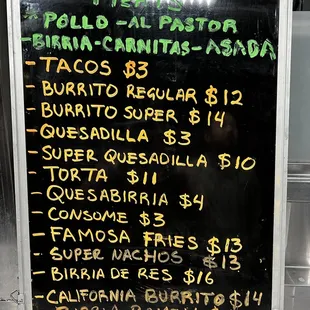 POLLO - AL PASTOR
-BIRRIA-CARNITAS-ASADA
- TACOS $3
- BURRITO REGULAR $12
- BURRITO SUPER $14
- QUESADILLA $3
- SUPER QUESADILLA $10
- TORTA $11
- QUESABIRRIA $4
- CONSOME $3
- FAMOSA FRIES $13
- SUPER NACHOS $13
- BIRRIA DE RES $16
- CALIFORNIA BURRITO $14